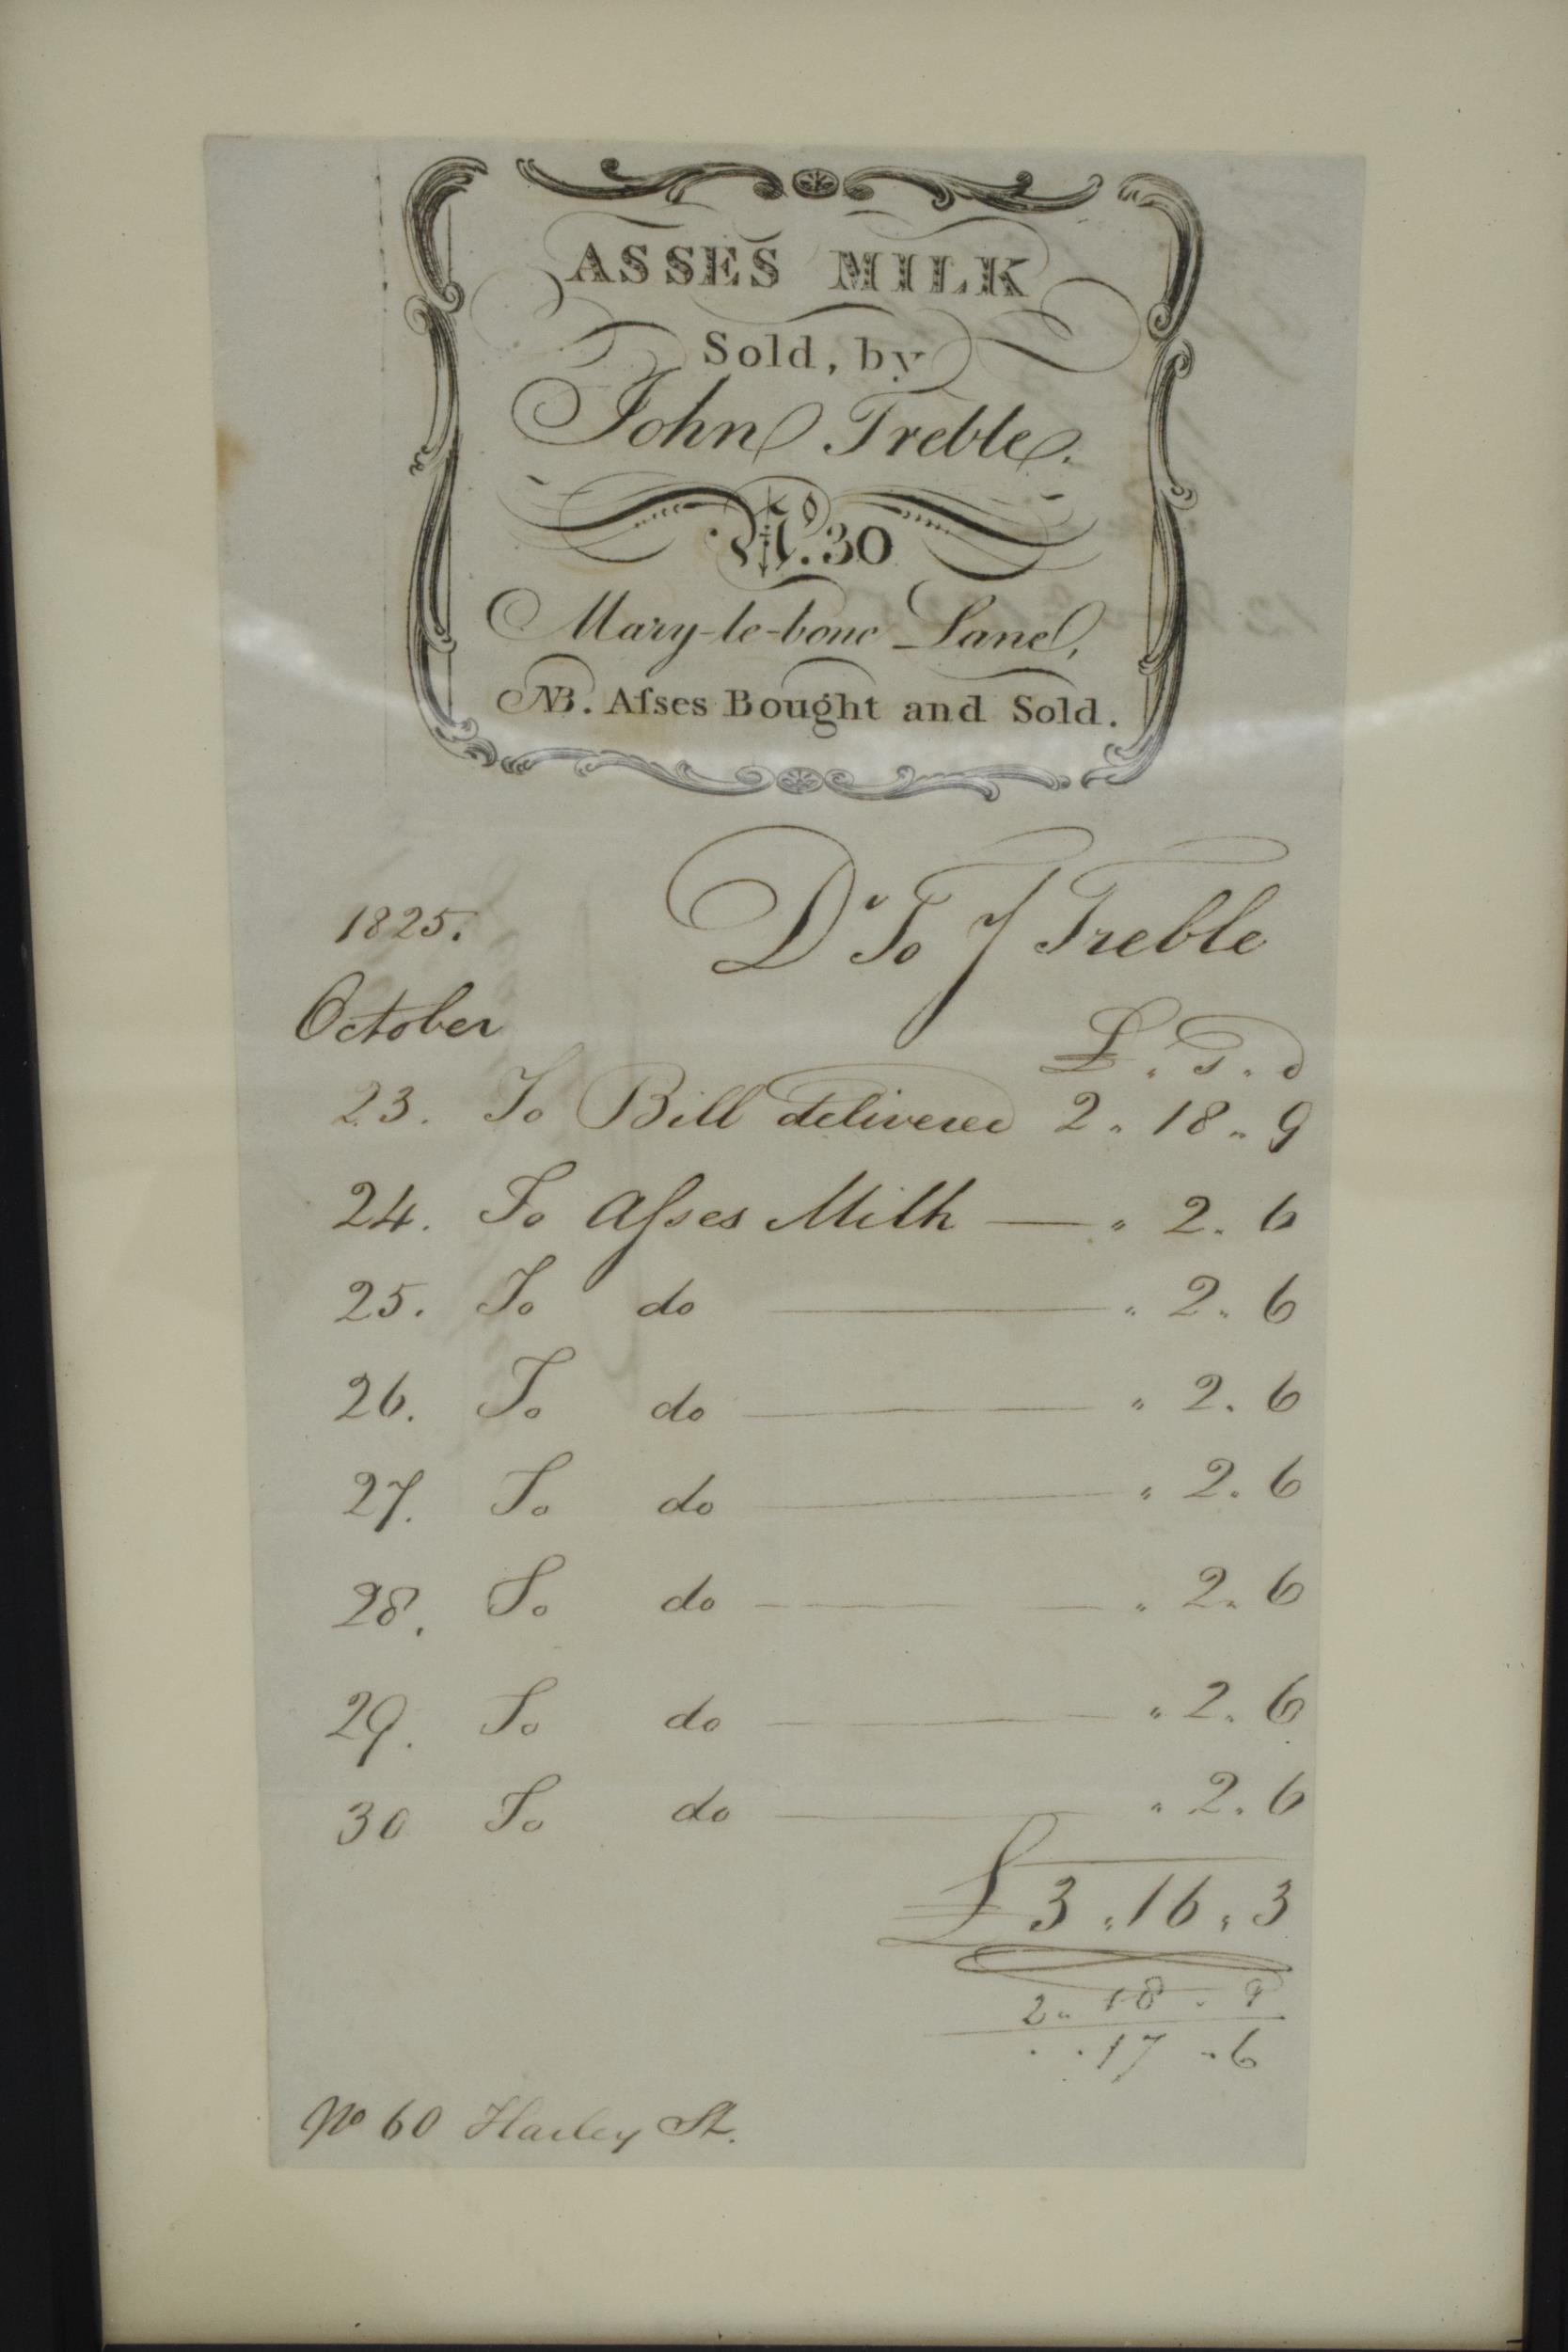 ASSES MILK
Sold, by
John Treble.
No. 30
Mary-le-bone Lane,
NB. Aſses Bought and Sold.
1825. Dr To J Treble
October
£ . s . d
23. To Bill delivered 2 " 18 " 9
24. To Aſses Milk — " 2. 6
25. To do — " 2 " 6
26. To do — " 2. 6
27. To do — " 2. 6
28. To do — — " 2 " 6
29. To do — " 2. 6
30 To do — " 2. 6
£ 3 " 16 " 3
2 " 18 . 9
. . 17 " 6
No 60 Harley St.